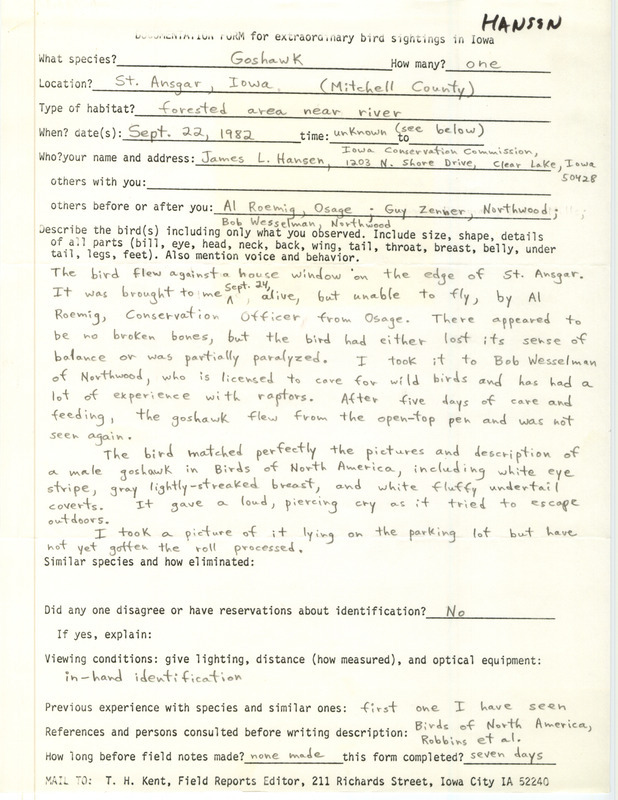 HANSEN
DOCUMENTATION FORM for extraordinary bird sightings in Iowa
What species? Goshawk How many? one
Location? St. Ansgar, Iowa (Mitchell County)
Type of habitat? forested area near river
When? date(s): Sept. 22, 1982 time: unknown (see below) to
Iowa Conservation Commission,
Who?your name and address: James L. Hansen, 1203 N. Shore Drive, Clear Lake, Iowa
50428
others with you:
others before or after you: Al Roemig, Osage ; Guy Zenner, Northwood ;
Bob Wesselman, Northwood
Describe the bird(s) including only what you observed. Include size, shape, details
of all parts (bill, eye, head, neck, back, wing, tail, throat, breast, belly, under
tail, legs, feet). Also mention voice and behavior.
The bird flew against a house window on the edge of St. Ansgar.
It was brought to me Sept. 24, alive, but unable to fly, by Al
Roemig, Conservation Officer from Osage. There appeared to
be no broken bones, but the bird had either lost its sense of
balance or was partially paralyzed. I took it to Bob Wesselman
of Northwood, who is licensed to care for wild birds and has had a
lot of experience with raptors. After five days of care and
feeding, the goshawk flew from the open-top pen and was not
seen again.
The bird matched perfectly the pictures and description of
a male goshawk in Birds of North America, including white eye
stripe, gray lightly-streaked breast, and white fluffy undertail
coverts. It gave a loud, piercing cry as it tried to escape
outdoors.
I took a picture of it lying on the parking lot but have
not yet gotten the roll processed.
Similar species and how eliminated:
Did any one disagree or have reservations about identification? No
If yes, explain:
Viewing conditions: give lighting, distance (how measured), and optical equipment:
in-hand identification
Previous experience with species and similar ones: first one I have seen
References and persons consulted before writing description: Birds of North America,
Robbins et al.
How long before field notes made? none made this form completed? seven days
MAIL TO: T. H. Kent, Field Reports Editor, 211 Richards Street, Iowa City IA 52240